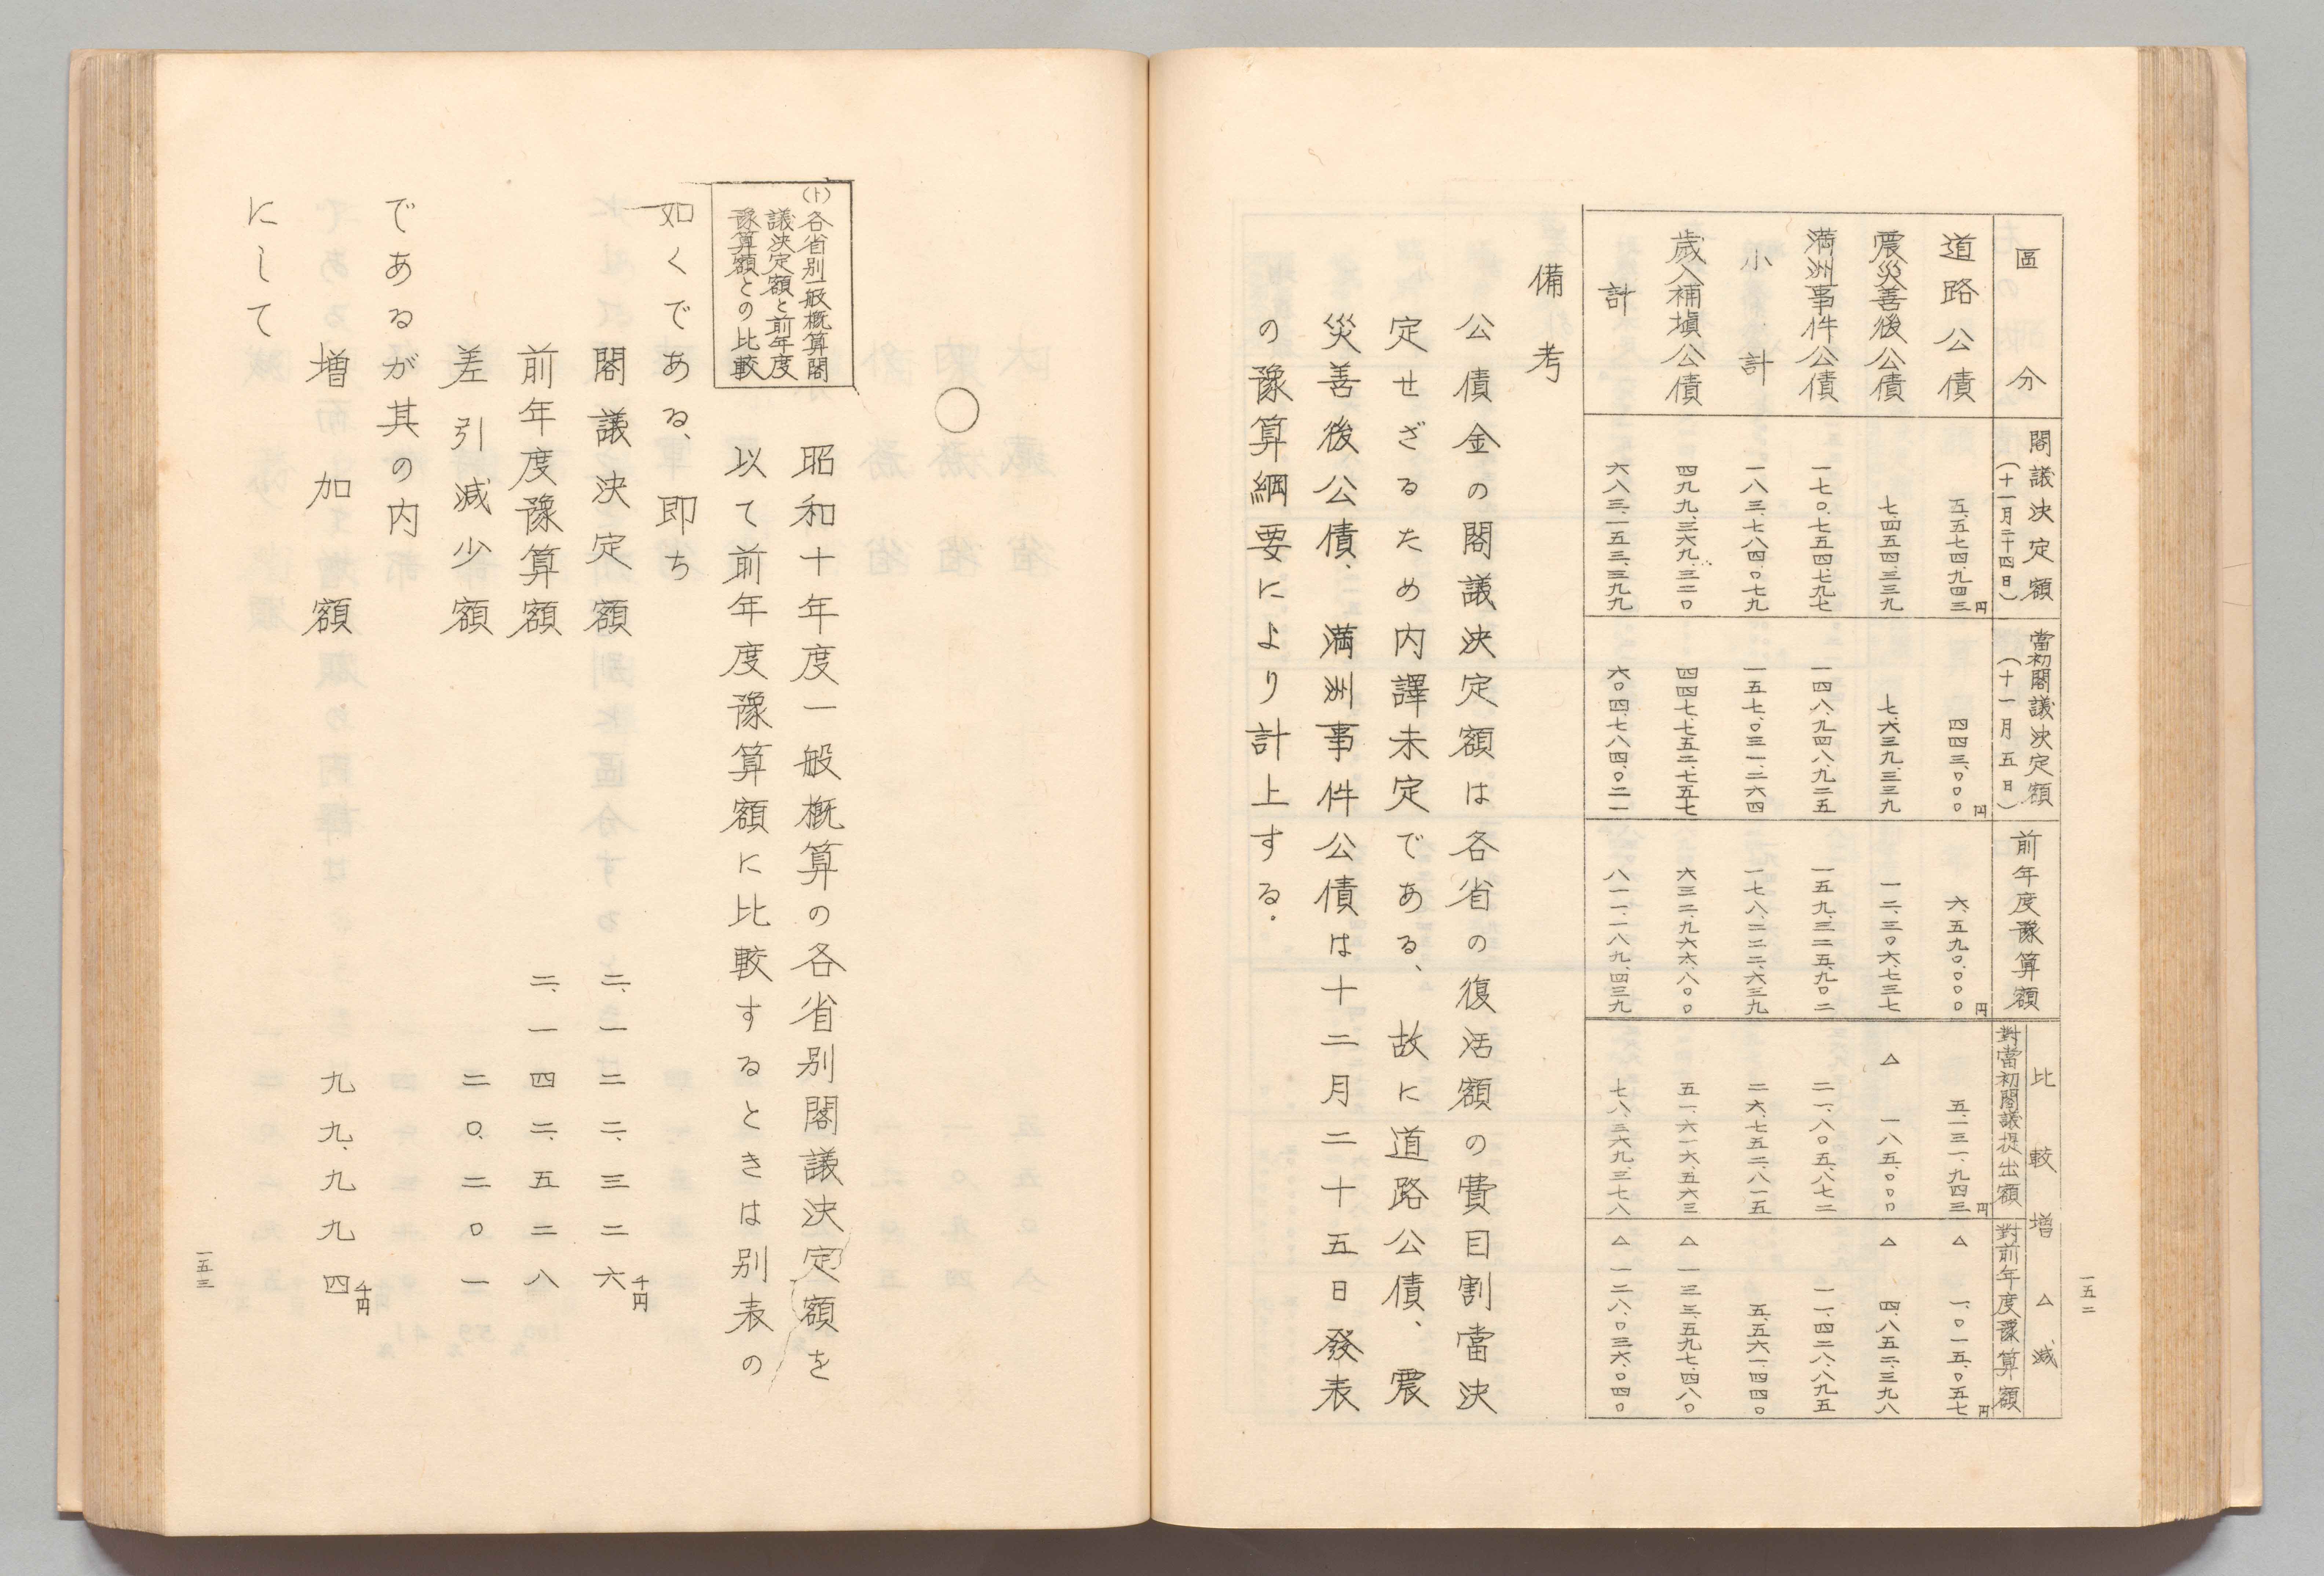 一五二
區分
閣議決定額
(十一月二十四日)
當初閣議決定額
(十一月五日)
前年度豫算額
比較増△減
對當初閣議提出額
對前年度豫算額
道路公債 五、五七四、九四三円 四四三、〇〇〇円 六、五九〇、〇〇〇円 五、一三一、九四三円 △一、〇一五、〇五七円
震災善後公債 七、四五四、三三九 七、六三九、三三九 一二、三〇六、七三七 △一八五、〇〇〇 △四、八五二、三九八
満洲事件公債 一七〇、七五四、七九七 一四八、九四八、九二五 一五九、三二五、九〇二 二一、八〇五、八七二 一一、四二八、八九五
小計 一八三、七八四、〇七九 一五七、〇三一、二六四 一七八、二二二、六三九 二六、七五二、八一五 五、五六一、四四〇
歳入補塡公債 四九九、三六九、三二〇 四四七、七五二、七五七 六三二、九六六、八〇〇 五一、六一六、五六三 △一三三、五九七、四八〇
計 六八三、一五三、三九九 六〇四、七八四、〇二一 八一一、一八九、四三九 七八、三六九、三七八 △一二八、〇三六、〇四〇
備考
公債金の閣議決定額は各省の復活額の費目割當決
定せざるため内譯未定である、故に道路公債、震
災善後公債、満洲事件公債は十二月二十五日發表
の豫算綱要により計上する.
〇
(ト)各省別一般概算閣
議決定額と前年度
豫算額との比較
昭和十年度一般概算の各省別閣議決定額を
以て前年度豫算額に比較するときは別表の
如くである、即ち
閣議決定額 二、一二二、三二六千円
前年度豫算額 二、一四二、五二八
差引減少額 二〇、二〇一
であるが其の内
増加額 九九、九九四千円
にして
一五三